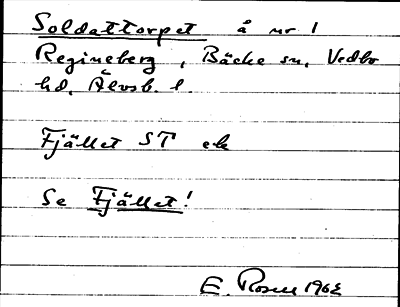 Soldattorpet å nr 1
Regineberg, Bäcke sn, Vedbo
hd. Älvsb. l.
Fjället ST ek
Se Fjället!
E. Rosell 1962